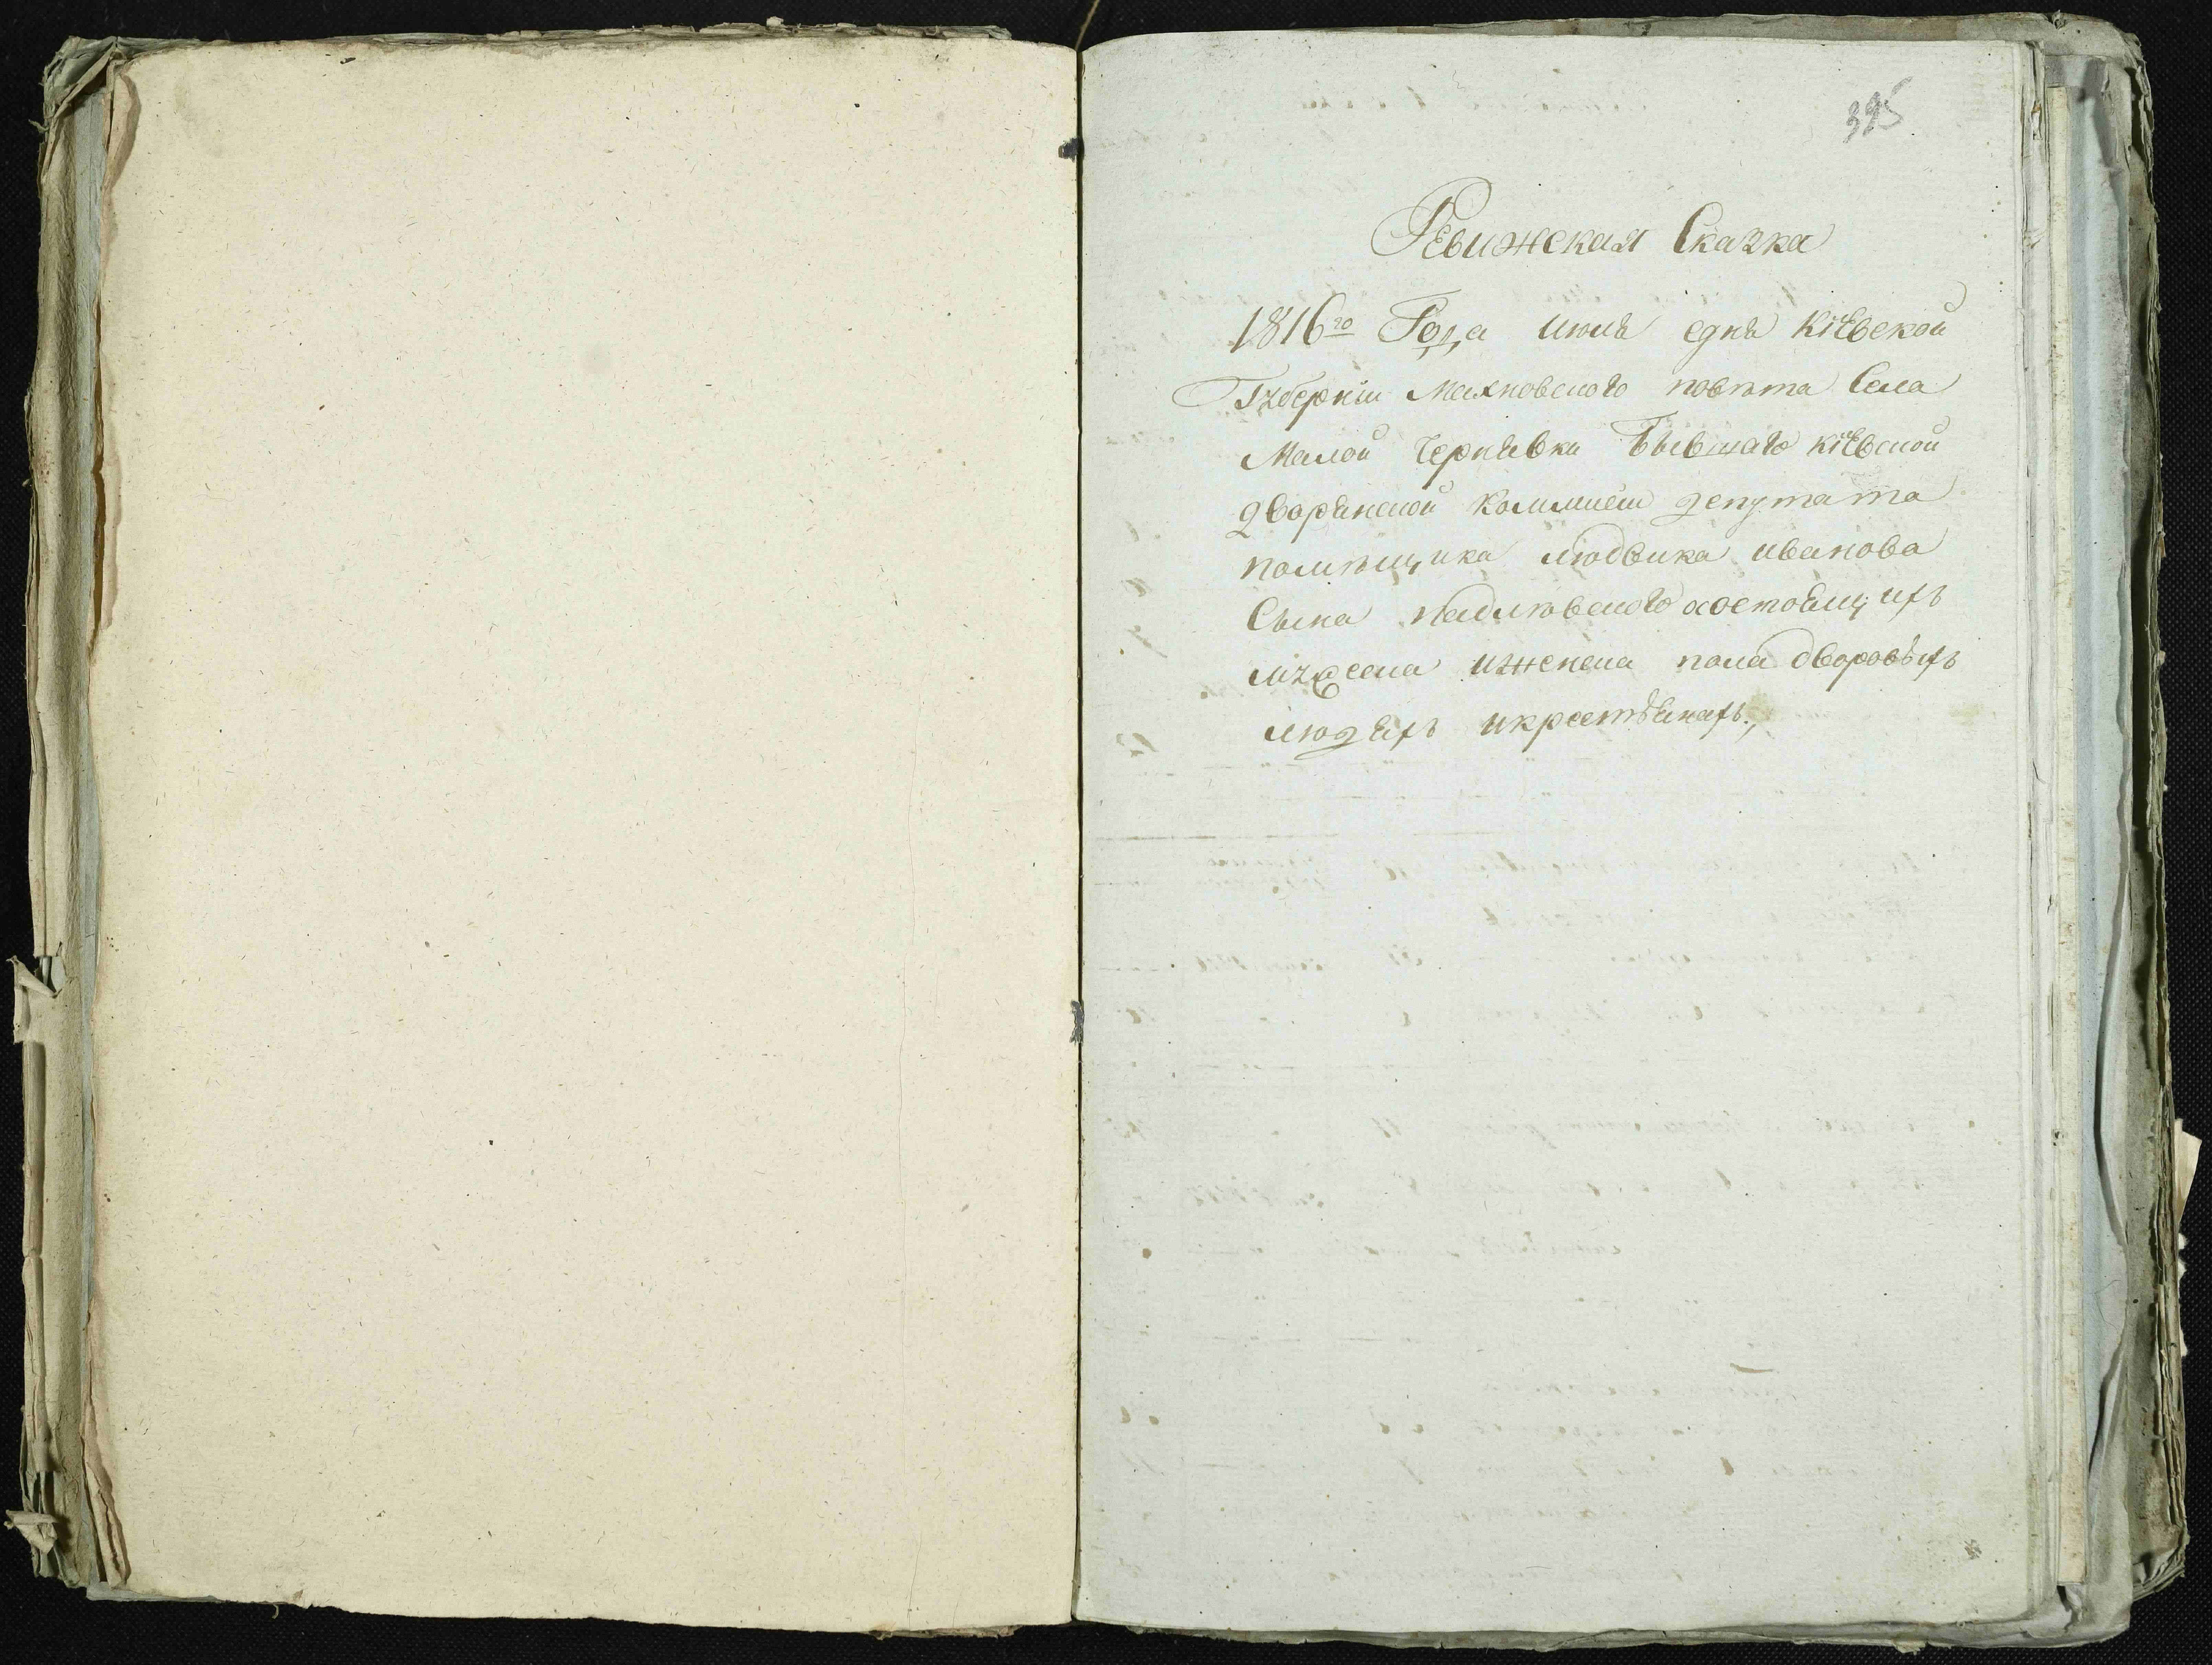 395
Ревижская Сказка
1816го Года июня дня Кіевской
Губерніи Махновского повѣта Села
Малой Чернявки Бывшаго Кіевской
дворянской Коммисіи депутата
помѣщика Людвика Иванова
Сына состоящихъ
мужеска иженска пола дворовыхъ
людяхъ икрестьянахъ.,